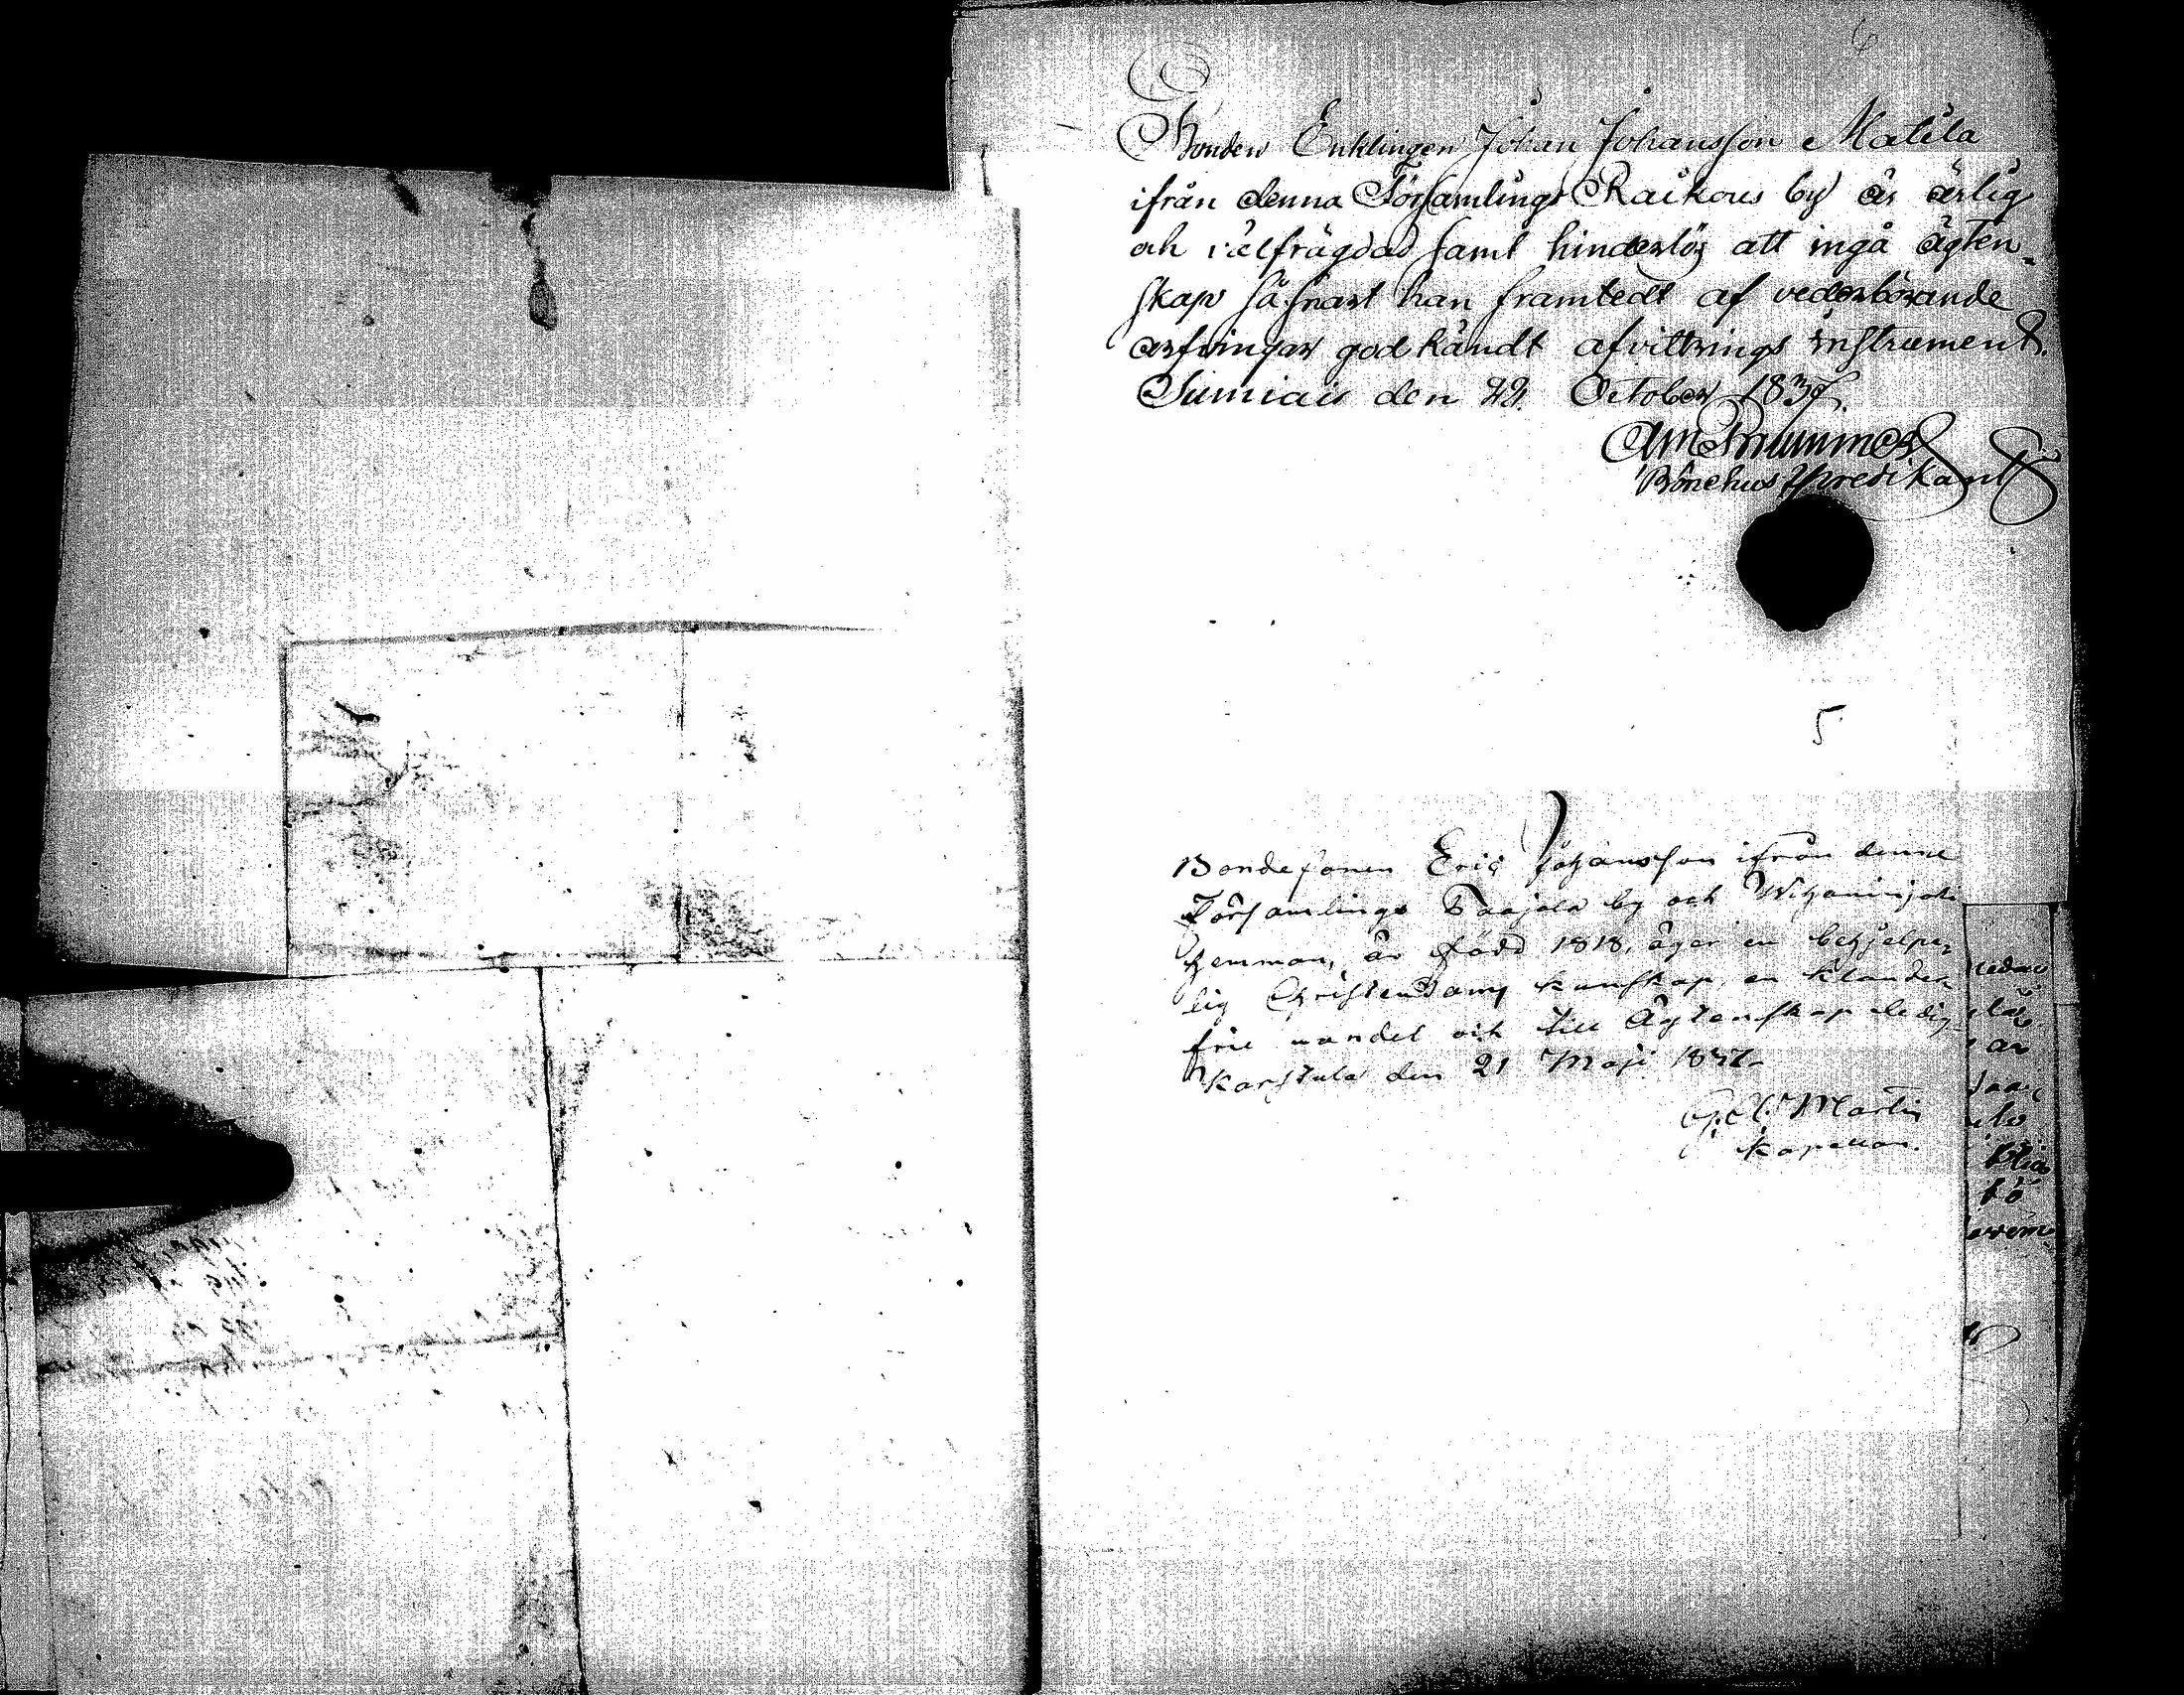 6
Bonden Enklingen Johan Johansson Matila
ifrån denna Församlings Raikous by är ärlig
och välfrägdad samt hinderlös att ingå ägten-
skap så snart han framtedt af vederbörande
arfvingar godkändt afvittrings instrument.
Sumiais den 22. October 1837.
Bönehus Predikant
5
Bondesonen Eric Johansson ifrån denne
Församlings by och
hemman, är född 1818, äger en behjelpe-
lig Christendoms kunskap, en klander-
frie vandel och till Ägtenskap ledig.
Karstula den 21 Maji
Martin
Kapellan.